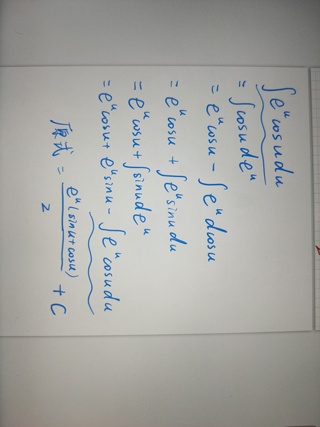 ∫eᵘcosudu
= ∫cosudeᵘ
= eᵘcosu - ∫eᵘdcosu
= eᵘcosu + ∫eᵘsinudu
= eᵘcosu + ∫sinudeᵘ
= eᵘcosu + eᵘsinu - ∫eᵘcosudu
原式 = eᵘ(sinu+cosu)/2 + C